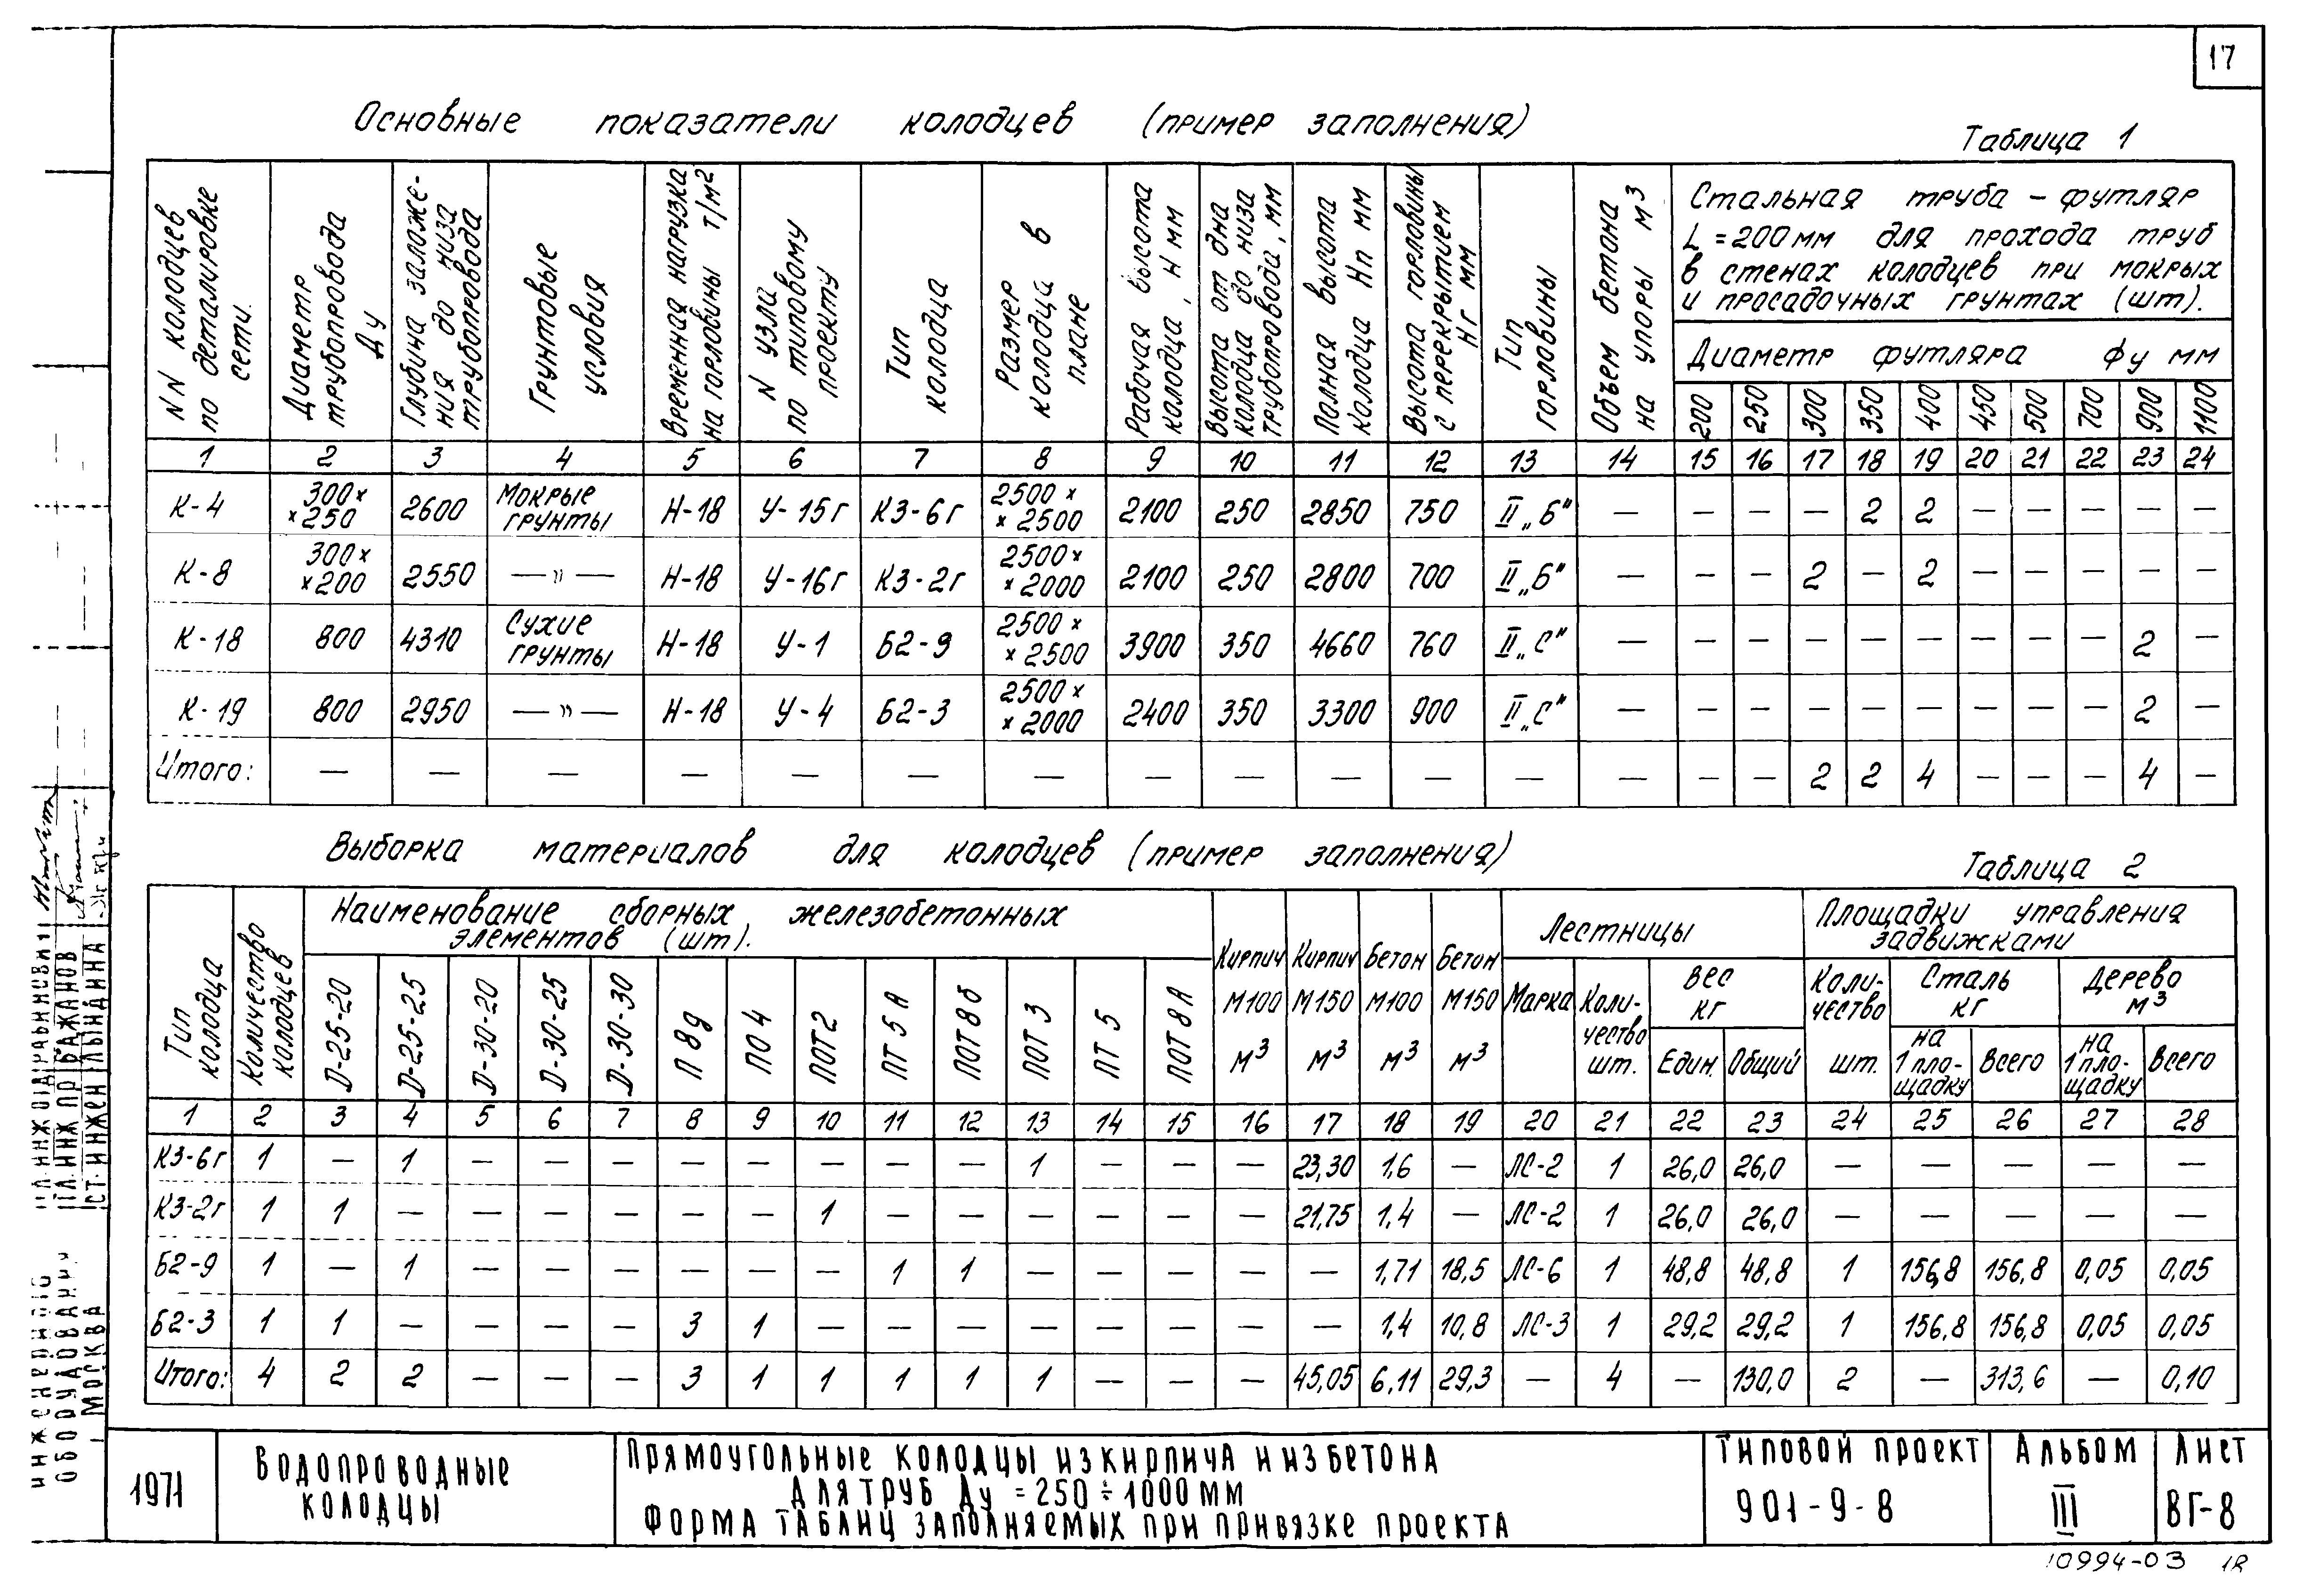 17
Основные показатели колодцев (пример заполнения)
Таблица 1
NN колодцев по деталировке сети.
Диаметр трубопровода Ду
Глубина заложения до низа трубопровода
Грунтовые условия
Временная нагрузка на горловины т/м2
N узла по типовому проекту
Тип колодца
Размер колодца в плане
Рабочая высота колодца, Н мм
Высота от дна колодца до низа трубопровода, мм
Полная высота колодца Нп мм
Высота горловины с перекрытием Нг мм
Тип горловины
Объем бетона на упоры м3
Стальная труба – футляр
L = 200 мм для прохода труб
в стенах колодцев при мокрых
и просадочных грунтах (шт).
Диаметр футляра Фу мм
200 250 300 350 400 450 500 700 900 1100
1 2 3 4 5 6 7 8 9 10 11 12 13 14 15 16 17 18 19 20 21 22 23 24
К-4 300××250 2600 Мокрые грунты Н-18 У-15г К3-6г 2500××2500 2100 250 2850 750 II „Б" — — — — 2 2 — — — — —
К-8 300××200 2550 —"— Н-18 У-16г К3-2г 2500××2000 2100 250 2800 700 II „Б" — — — 2 — 2 — — — — —
К-18 800 4310 Сухие грунты Н-18 У-1 Б2-9 2500××2500 3900 350 4660 760 II „С" — — — — — — — — — 2 —
К-19 800 2950 —"— Н-18 У-4 Б2-3 2500××2000 2400 350 3300 900 II „С" — — — — — — — — — 2 —
Итого: — — — — — — — — — — — — — — — 2 2 4 — — — 4 —
Выборка материалов для колодцев (пример заполнения)
Таблица 2
Тип колодца
Количество колодцев
Наименование сборных железобетонных
элементов (шт).
Д-25-20 Д-25-25 Д-30-20 Д-30-25 Д-30-30 П 8д ПО 4 ПОТ 2 ПТ 5А ПОТ 8б ПОТ 3 ПТ 5 ПОТ 8А
Кирпич М100 м3
Кирпич М150 м3
Бетон М100 м3
Бетон М150 м3
Лестницы
Марка
Количество шт.
Вес кг
Един. Общий
Площадки управления
задвижками
Количество шт.
Сталь кг
на 1 площадку Всего
Дерево м3
на 1 площадку Всего
1 2 3 4 5 6 7 8 9 10 11 12 13 14 15 16 17 18 19 20 21 22 23 24 25 26 27 28
К3-6г 1 — 1 — — — — — — — — 1 — — — 23,30 1,6 — ЛС-2 1 26,0 26,0 — — — — —
К3-2г 1 1 — — — — — — 1 — — — — — — 21,75 1,4 — ЛС-2 1 26,0 26,0 — — — — —
Б2-9 1 — 1 — — — — — — 1 1 — — — — — 1,71 18,5 ЛС-6 1 48,8 48,8 1 156,8 156,8 0,05 0,05
Б2-3 1 1 — — — — 3 1 — — — — — — — — 1,4 10,8 ЛС-3 1 29,2 29,2 1 156,8 156,8 0,05 0,05
Итого: 4 2 2 — — — 3 1 1 1 1 1 — — — 45,05 6,11 29,3 — 4 — 130,0 2 — 313,6 — 0,10
1971
Водопроводные
колодцы
Прямоугольные колодцы из кирпича и из бетона
для труб Ду = 250 ÷ 1000 мм
Форма таблиц заполняемых при привязке проекта
Типовой проект
901-9-8
Альбом
III
Лист
ВГ-8
10994-03 18
Бажанов
Ст. инжен Лындина
оборудования
Москва